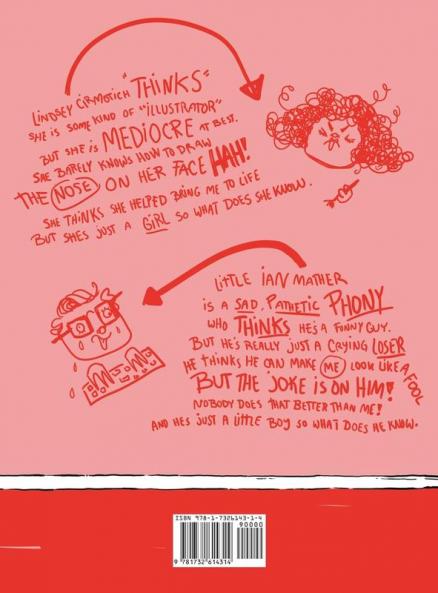 LINDSEY CIRMOTICH "THINKS"
SHE IS SOME KIND OF "ILLUSTRATOR"
BUT SHE IS MEDIOCRE AT BEST.
SHE BARELY KNOWS HOW TO DRAW
THE NOSE ON HER FACE HAH!
SHE THINKS SHE HELPED BRING ME TO LIFE
BUT SHES JUST A GIRL SO WHAT DOES SHE KNOW.
LITTLE IAN MATHER
IS A SAD, PATHETIC PHONY
WHO THINKS HE'S A FUNNY GUY.
BUT HE'S REALLY JUST A CRYING LOSER
HE THINKS HE CAN MAKE ME LOOK LIKE A FOOL
BUT THE JOKE IS ON HIM!
NOBODY DOES THAT BETTER THAN ME!
AND HE'S JUST A LITTLE BOY SO WHAT DOES HE KNOW.
ISBN 978-1-7326143-1-4
90000
9 781732 614314